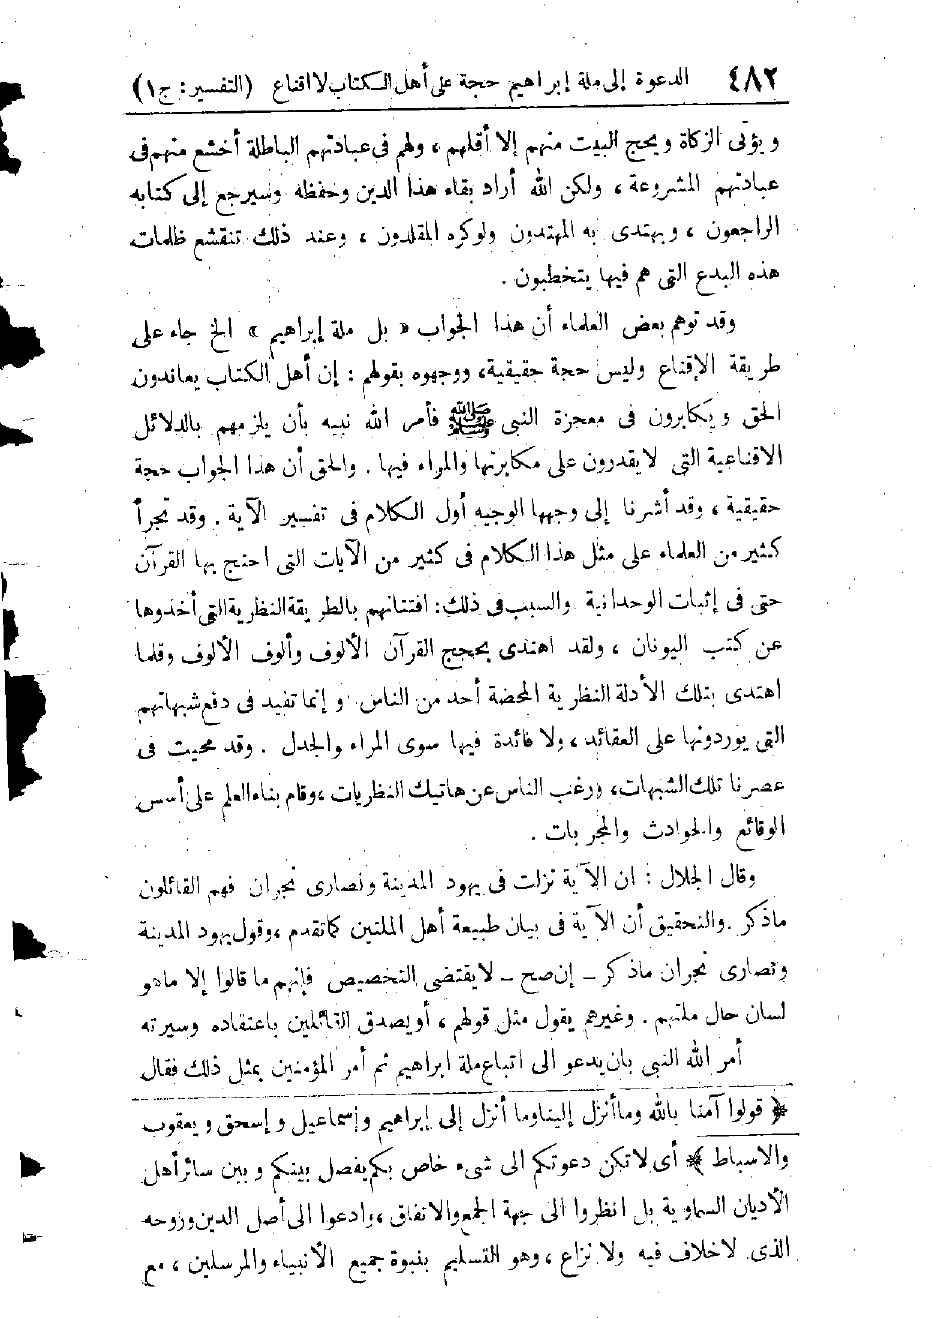 ٤٨٢ الدعوة إلى ملة إبراهيم حجة على أهل الكتاب لا اقناع (التفسير: ج١)
ويؤتى الزكاة ويحج البيت منهم إلا أقلهم، ولهم فى عبادتهم الباطلة أخشع منهم فى
عبادتهم المشروعة، ولكن الله أراد بقاء هذا الدين وحفظه وسيرجع إلى كتابه
الراجعون، ويهتدى به المهتدون ولوكره المقلدون، وعند ذلك تنقشع ظلمات
هذه البدع التى هم فيها يتخطبون.
وقد توهم بعض العلماء أن هذا الجواب «بل ملة إبراهيم» الخ جاء على
طريقة الإقناع وليس حجة حقيقية، ووجهوه بقولهم: إن أهل الكتاب يعاندون
الحق ويكابرون فى معجزة النبى ﷺ فأمر الله نبيه بأن يلزمهم بالدلائل
الاقناعية التى لا يقدرون على مكابرتها والمراء فيها. والحق أن هذا الجواب حجة
حقيقية، وقد أشرنا إلى وجهها الوجيه أول الكلام فى تفسير الآية. وقد تجرأ
كثير من العلماء على مثل هذا الكلام فى كثير من الآيات التى احتج بها القرآن
حتى فى إثبات الوحدانية والسبب فى ذلك: افتتانهم بالطريقة النظرية التى أخذوها
عن كتب اليونان، ولقد اهتدى بحجج القرآن الألوف وألوف الألوف وقلما
اهتدى بتلك الأدلة النظرية المحضة أحد من الناس. وإنما تفيد فى دفع شبهاتهم
التى يوردونها على العقائد، ولا فائدة فيها سوى المراء والجدل. وقد محيت فى
عصرنا تلك الشبهات، ورغب الناس عن هاتيك النظريات، وقام بناء العلم على أسس
الوقائع والحوادث والمجربات.
وقال الجلال: ان الآية نزلت فى يهود المدينة ونصارى نجران فهم القائلون
ماذكر. والتحقيق أن الآية فى بيان طبيعة أهل الملتين كما تقدم، وقول يهود المدينة
ونصارى نجران ماذكر - إن صح - لا يقتضى التخصيص فإنهم ما قالوا إلا ماهو
لسان حال ملتهم. وغيرهم يقول مثل قولهم، أو يصدق القائلين باعتقاده وسيرته
أمر الله النبى بان يدعو الى اتباع ملة ابراهيم ثم أمر المؤمنين بمثل ذلك فقال
﴿قولوا آمنا بالله وما أنزل إلينا وما أنزل إلى إبراهيم وإسماعيل وإسحق ويعقوب
والاسباط﴾ أى لا تكن دعوتكم الى شىء خاص بكم يفصل بينكم وبين سائر أهل
الأديان السماوية بل انظروا الى جهة الجمع والاتفاق، وادعوا الى أصل الدين وروحه
الذى لا خلاف فيه ولا نزاع، وهو التسليم بنبوة جميع الأنبياء والمرسلين، مع